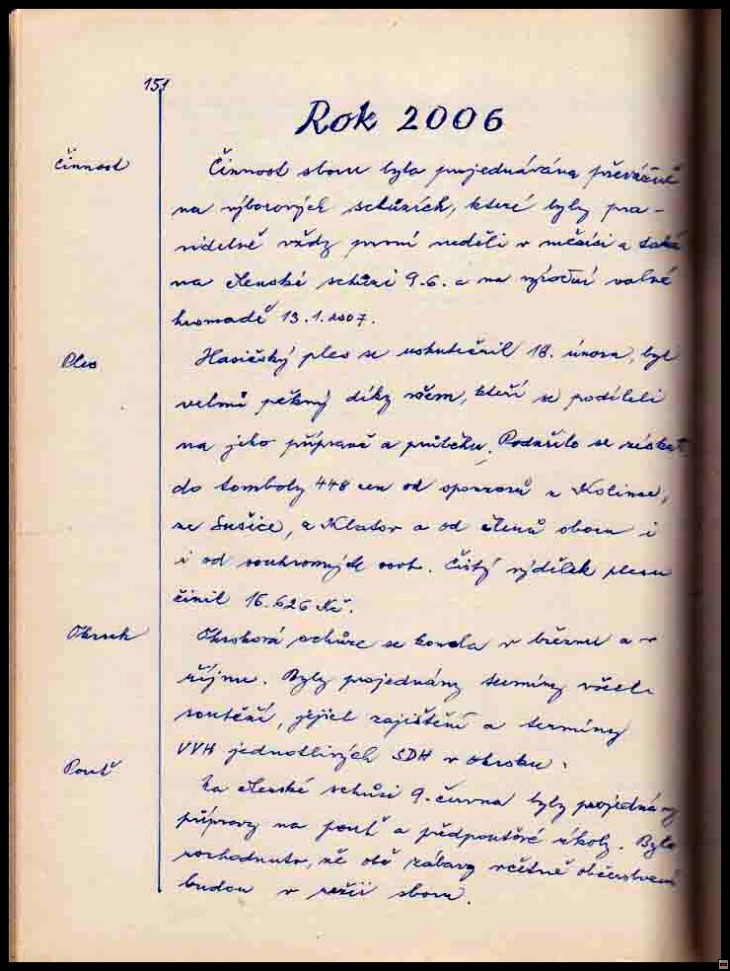 151
Rok 2006
Činnost
Činnost sboru byla projednávána převážně
na výborových schůzích, které byly pra-
videlně vždy první neděli v měsíci a také
na členské schůzi 9.6. a na výroční valné
hromadě 13.1.2007.
Ples
Hasičský ples se uskutečnil 18. února, byl
velmi pěkný díky všem, kteří se podíleli
na jeho přípravě a průběhu. Podařilo se získat
do tomboly 448 cen od sponzorů z Kolince,
ze Sušice, z Klatov a od členů sboru i
i od soukromých osob. Čistý výdělek plesu
činil 16.626 Kč.
Okrsek
Okrsková schůze se konala v březnu a v
říjnu. Byly projednány termíny všech
soutěží, jejich zajištění a termíny
VVH jednotlivých SDH v okrsku.
Pouť
Na členské schůzi 9. června byly projednány
přípravy na pouť a předpouťové úkoly. Bylo
rozhodnuto, že obě zábavy včetně občerstvení
budou v režii sboru.